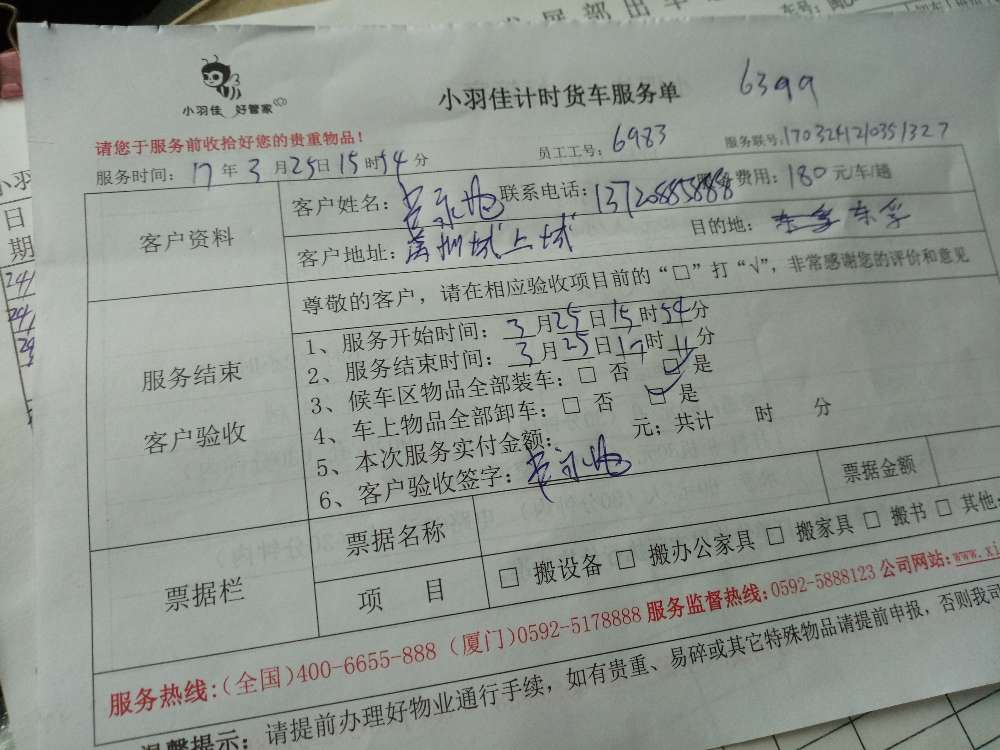 小羽佳 好管家
小羽佳计时货车服务单
6399
请您于服务前收拾好您的贵重物品！
服务时间：17年3月25日15时54分
员工工号：6983
服务联号：170324120351327
客户资料
客户姓名： 联系电话：13720885888 费用：180元/车/趟
客户地址： 目的地：东孚 东孚
服务结束
客户验收
尊敬的客户，请在相应验收项目前的“□”打“√”，非常感谢您的评价和意见
1、服务开始时间：3月25日15时54分
2、服务结束时间：3月25日17时11分
3、候车区物品全部装车：□ 否 □ 是
4、车上物品全部卸车：□ 否 □ 是
5、本次服务实付金额： 元；共计 时 分
6、客户验收签字：
票据栏
票据名称
票据金额
项 目
□ 搬设备 □ 搬办公家具 □ 搬家具 □ 搬书 □ 其他
服务热线：（全国）400-6655-888 （厦门）0592-5178888 服务监督热线：0592-5888123 公司网站：www.xi
温馨提示：请提前办理好物业通行手续，如有贵重、易碎或其它特殊物品请提前申报，否则我司
日
期